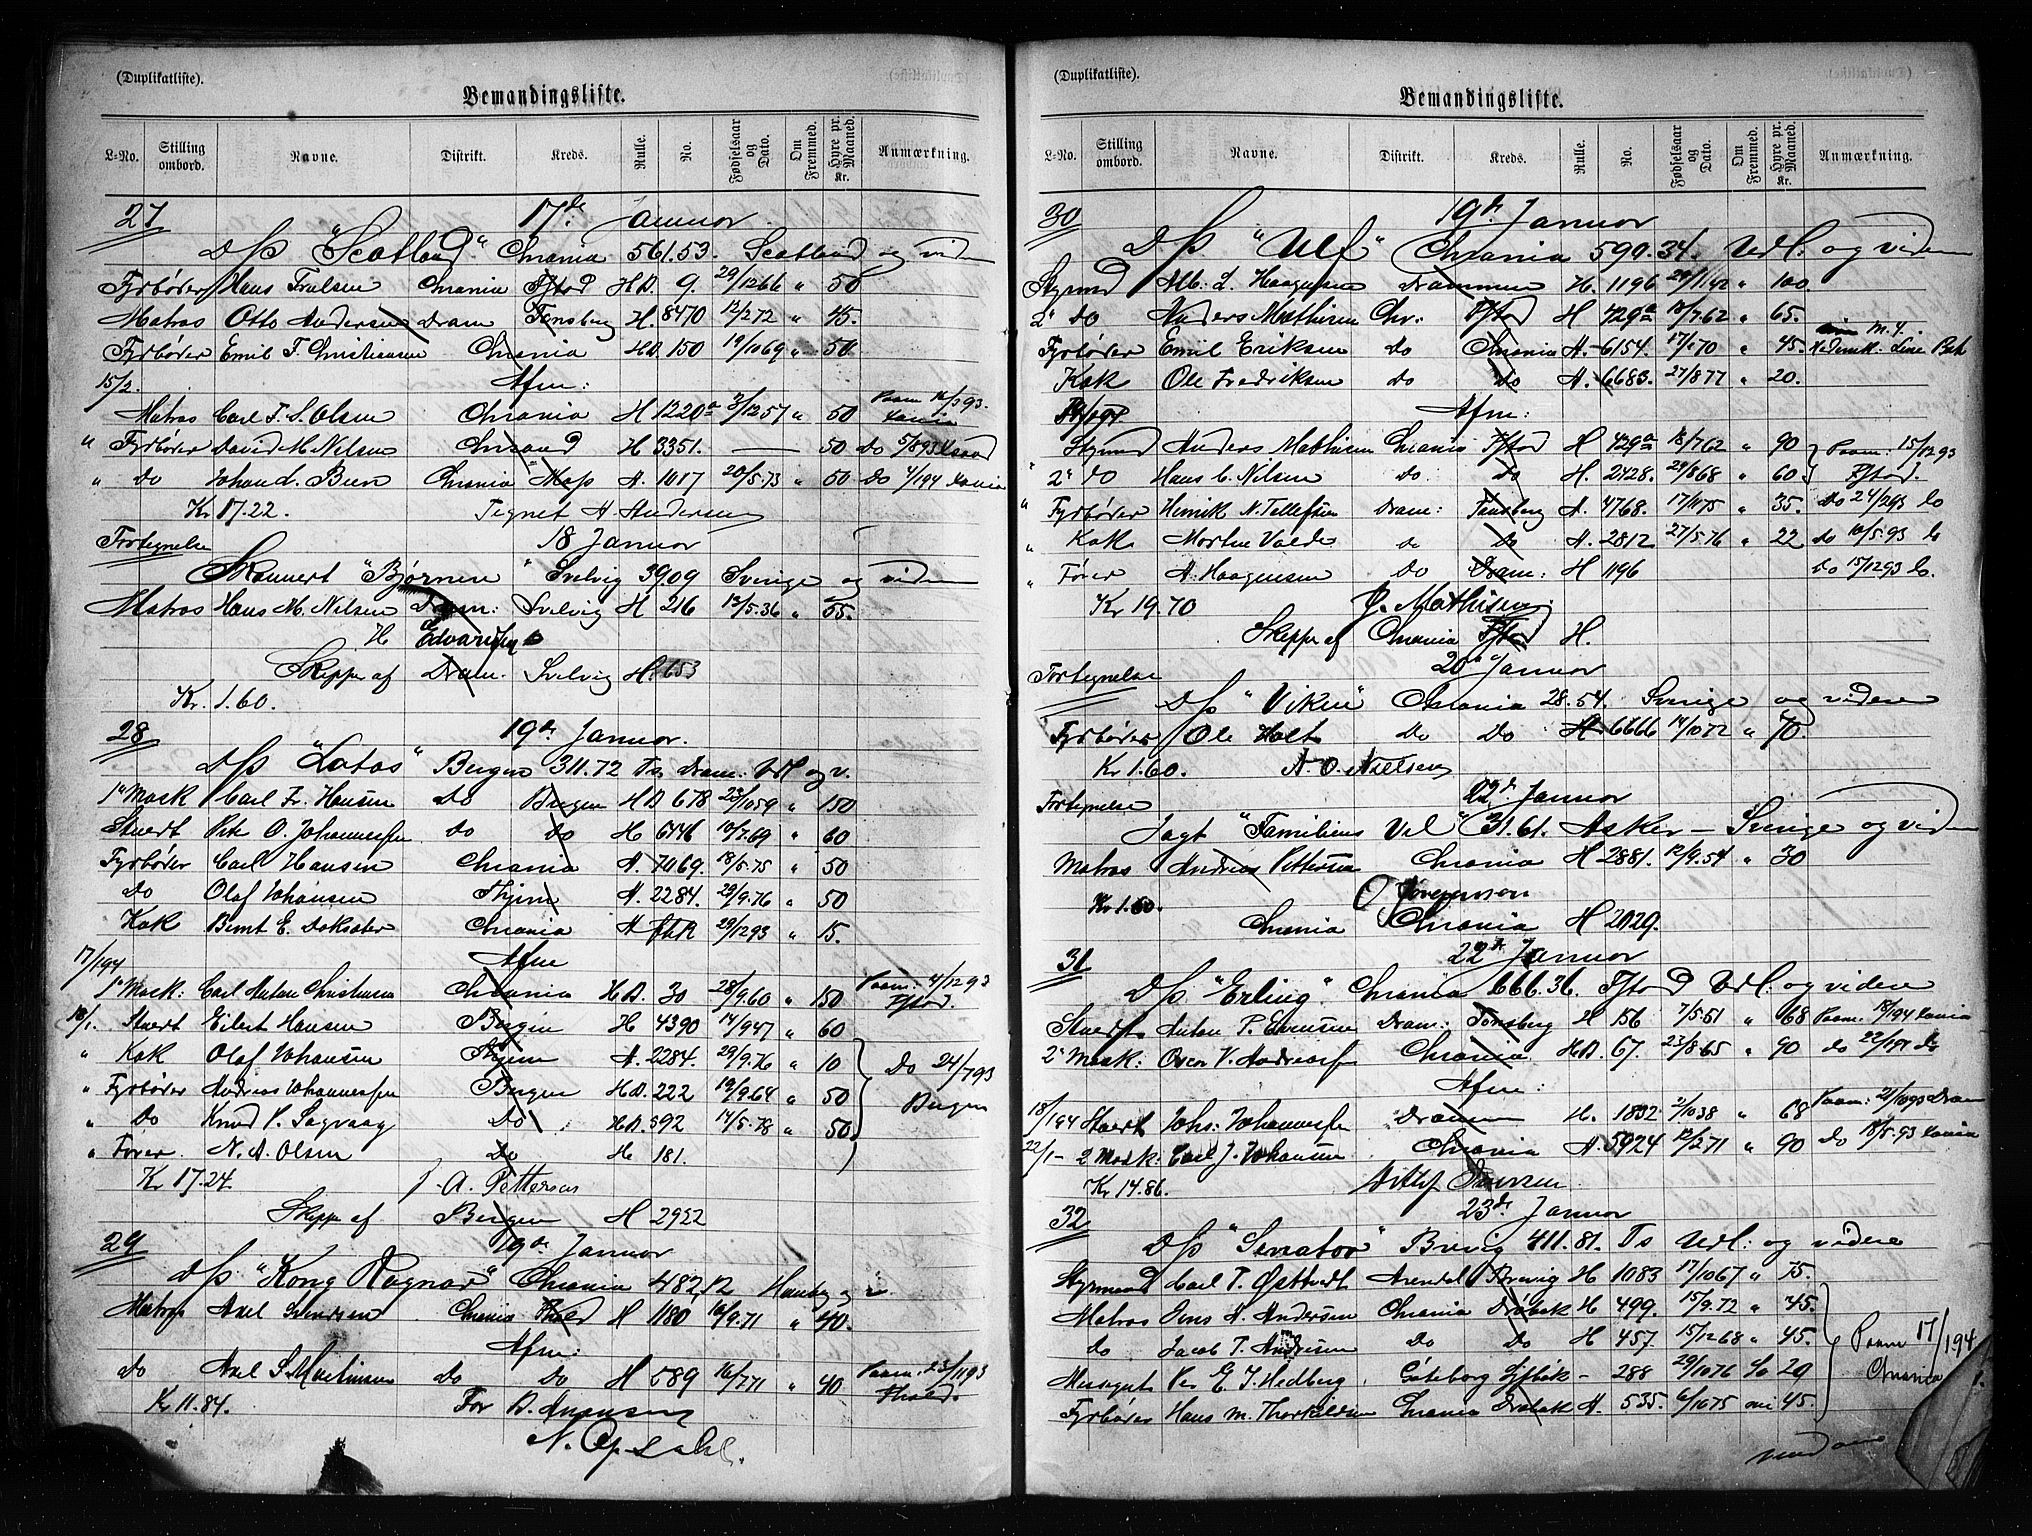 (Duplikatliste).
Bemandingsliste.
L=No. Stilling ombord. Navne. Distrikt. Kreds. Rulle. No. Fødselsaar og Dato. Om Fremmed. Hyre pr. Maaned. Kr. Anmærkning.
27 17de Januar
D/S "Scotland" Chrania 561.53. Scotland og viden
Fyrbøder Hans Truelsen Chrania Fstad H.D. 9. 29/1266 " 50
Matros Otto Andersen Dram Tønsberg H. 8470 12/272 " 45.
Fyrbøder Emil T. Christiansen Chrania H.D. 150 19/1069 " 50
15/2. Afm:
Matros Carl F. S. Olsen Chrania H 1220a 3/1257 " 50
" Fyrbøder David M. Nilsen Chrsand H 3351. — 50 Do 5/893
" Do Johan L. Chrania A. 1017 20/5.73 " 50 Do 4/194
Kr. 17.22. Tegnet A. Andersen
Fortegnelse 18 Januar
Skonnert "Bjørnen" Svelvig 39.09 Sverige og viden
Matros Hans M. Nilsen Dram: Svelvig H 216 13/5.36 " 55.
H Edvardsen
Skipper af Dram. Svelvig H. 653
Kr. 1.60.
28 19de Januar.
D/S "Lotos" Bergen 311.72 Ts Dram: Udl og v.
1ste Mask Carl Fr. Hansen Do Bergen H.D. 678 23/1059 " 150
Stuert Peter O. Johannessen Do Do H 6146 12/7.69 " 60
Fyrbøder Carl Hansen Chrania A. 7069. 18/5.75 " 50
Do Olaf Johansen Thjem A. 2284. 29/9.76 " 50
Kok Bernt E. Chrania A 29/1293 " 15.
17/194 Afm
1ste Mask: Carl Anton Christensen Chrania H.D. 30 28/9.60 " 150 Paam: 4/1293 Fstad.
18/1. Stuert Eilert Hansen Bergen H 4390 14/947 " 60
" Kok Olaf Johansen Thjem A. 2284. 29/9.76 " 10 Do 24/793 Bergen
" Fyrbøder Andreas Johannessen Bergen H.D. 222 19/9.64 " 50
" Do Knud P. Sagvaag Do H.D. 592 14/5.78 " 50
" Fører N. A. Olsen Do H 181.
Kr 17.24. J. A. Petterson
Skipper af Bergen H 2952
29 19de Januar
D/S "Kong Ragnar" Chrania 482.12 Hamburg og v
Matros Axel Svendsen Chrania H 1180 16/9.71 " 40.
Afm:
Do Axel S. Martinsen Do Do H 589 16/771 " 40 Paam: 23/1193
Kr 11.84. For A. Amensen
N. Opsahl.
(Duplikatliste).
Bemandingsliste.
L=No. Stilling ombord. Navne. Distrikt. Kreds. Rulle. No. Fødselsaar og Dato. Om Fremmed. Hyre pr. Maaned. Kr. Anmærkning.
30 19de Januar
D/S "Ulf" Chrania 590.34. Udl. og viden
Styrmd Alb: L. Haagensen Drammen H. 1196 29/1.42 " 100
2" do Anders Mathisen Chr: Fstad H 429a 18/7.62 " 65.
Fyrbøder Emil Eriksen Do Chrania A. 6154. " 45.
Kok Ole Fredriksen Do Do A. 6683. 27/877 " 20.
Afm:
Styrmd Anders Mathisen Chrania Fstad H 429a 18/762 " 90 Paam: 15/1293 Fstad.
" 2" do Hans C. Nilsen Do. Do H. 2428. 29/868 " 60
" Fyrbøder Henrik N. Tellefsen Dram: Tønsberg A. 4768. 17/1175 " 35. Do 24/293 Do
" Kok Morten Volde do do A. 2812 27/5.76 " 22 Do 10/5.93 Do
" Fører A. Haagensen Do Dram: H 1196 Do 15/1293 Do.
Kr 19.70 Mathisen
Skipper af Chrania Fstad H.
Fortegnelse 20de Januar
D/S "Viken" Chrania 28.54. Sverige og videre
Fyrbøder Ole Holt Do Do A 6666 14/1072 " 70
Kr 1.60. A. O. Axelsen
Fortegnelse 22de Januar
Jagt "Familiens Vel" 31.61. Asker — Sverige og viden
Matros Andreas Pettersen Chrania H 2881. 12/9.54 " 30
Kr 1.60.
Chrania Chrania H 2029.
31 22de Januar
D/S "Erling" Chrania 666.36. Fstad Udl. og videre
Stuert Anton P. Evensen Dram: Tønsberg H 156 7/5.51 " 68 Paam: 18/194
2" Mask: Oscar V. Andreassen Chrania H.D. 67. 23/8.65 " 90 do 22/194 do
Afm:
18/194 Stuert Johs: Johannessen Drammen H. 1832 2/1038 " 68 Paam: 21/1093 Dram
22/1 - 2 Mask: Carl J. Johansen. Chrania A. 5924 12/271 " 90 Do 18/5.93
Kr 14.86. Ditlef
32 23de Januar
D/S "Senator" Brevig 411.81. Ts Udl: og videre
Styrmand Carl T. Østtvedt Arendal Brevig H 1083 17/1067 " 75.
Matros Jens A. Andersen Chrania Drøbak H 499. 15/9.72 " 45. Paam 17/194 Chrania
do Jacob T. Andresen Do Do H 457. 15/1268 " 45.
Messegut Per E. J. Hedberg. Gøteborg - 288 29/1076 20
Fyrbøder Hans M. Thorkildsen Chrania Drøbak A. 535. 6/1075 45.